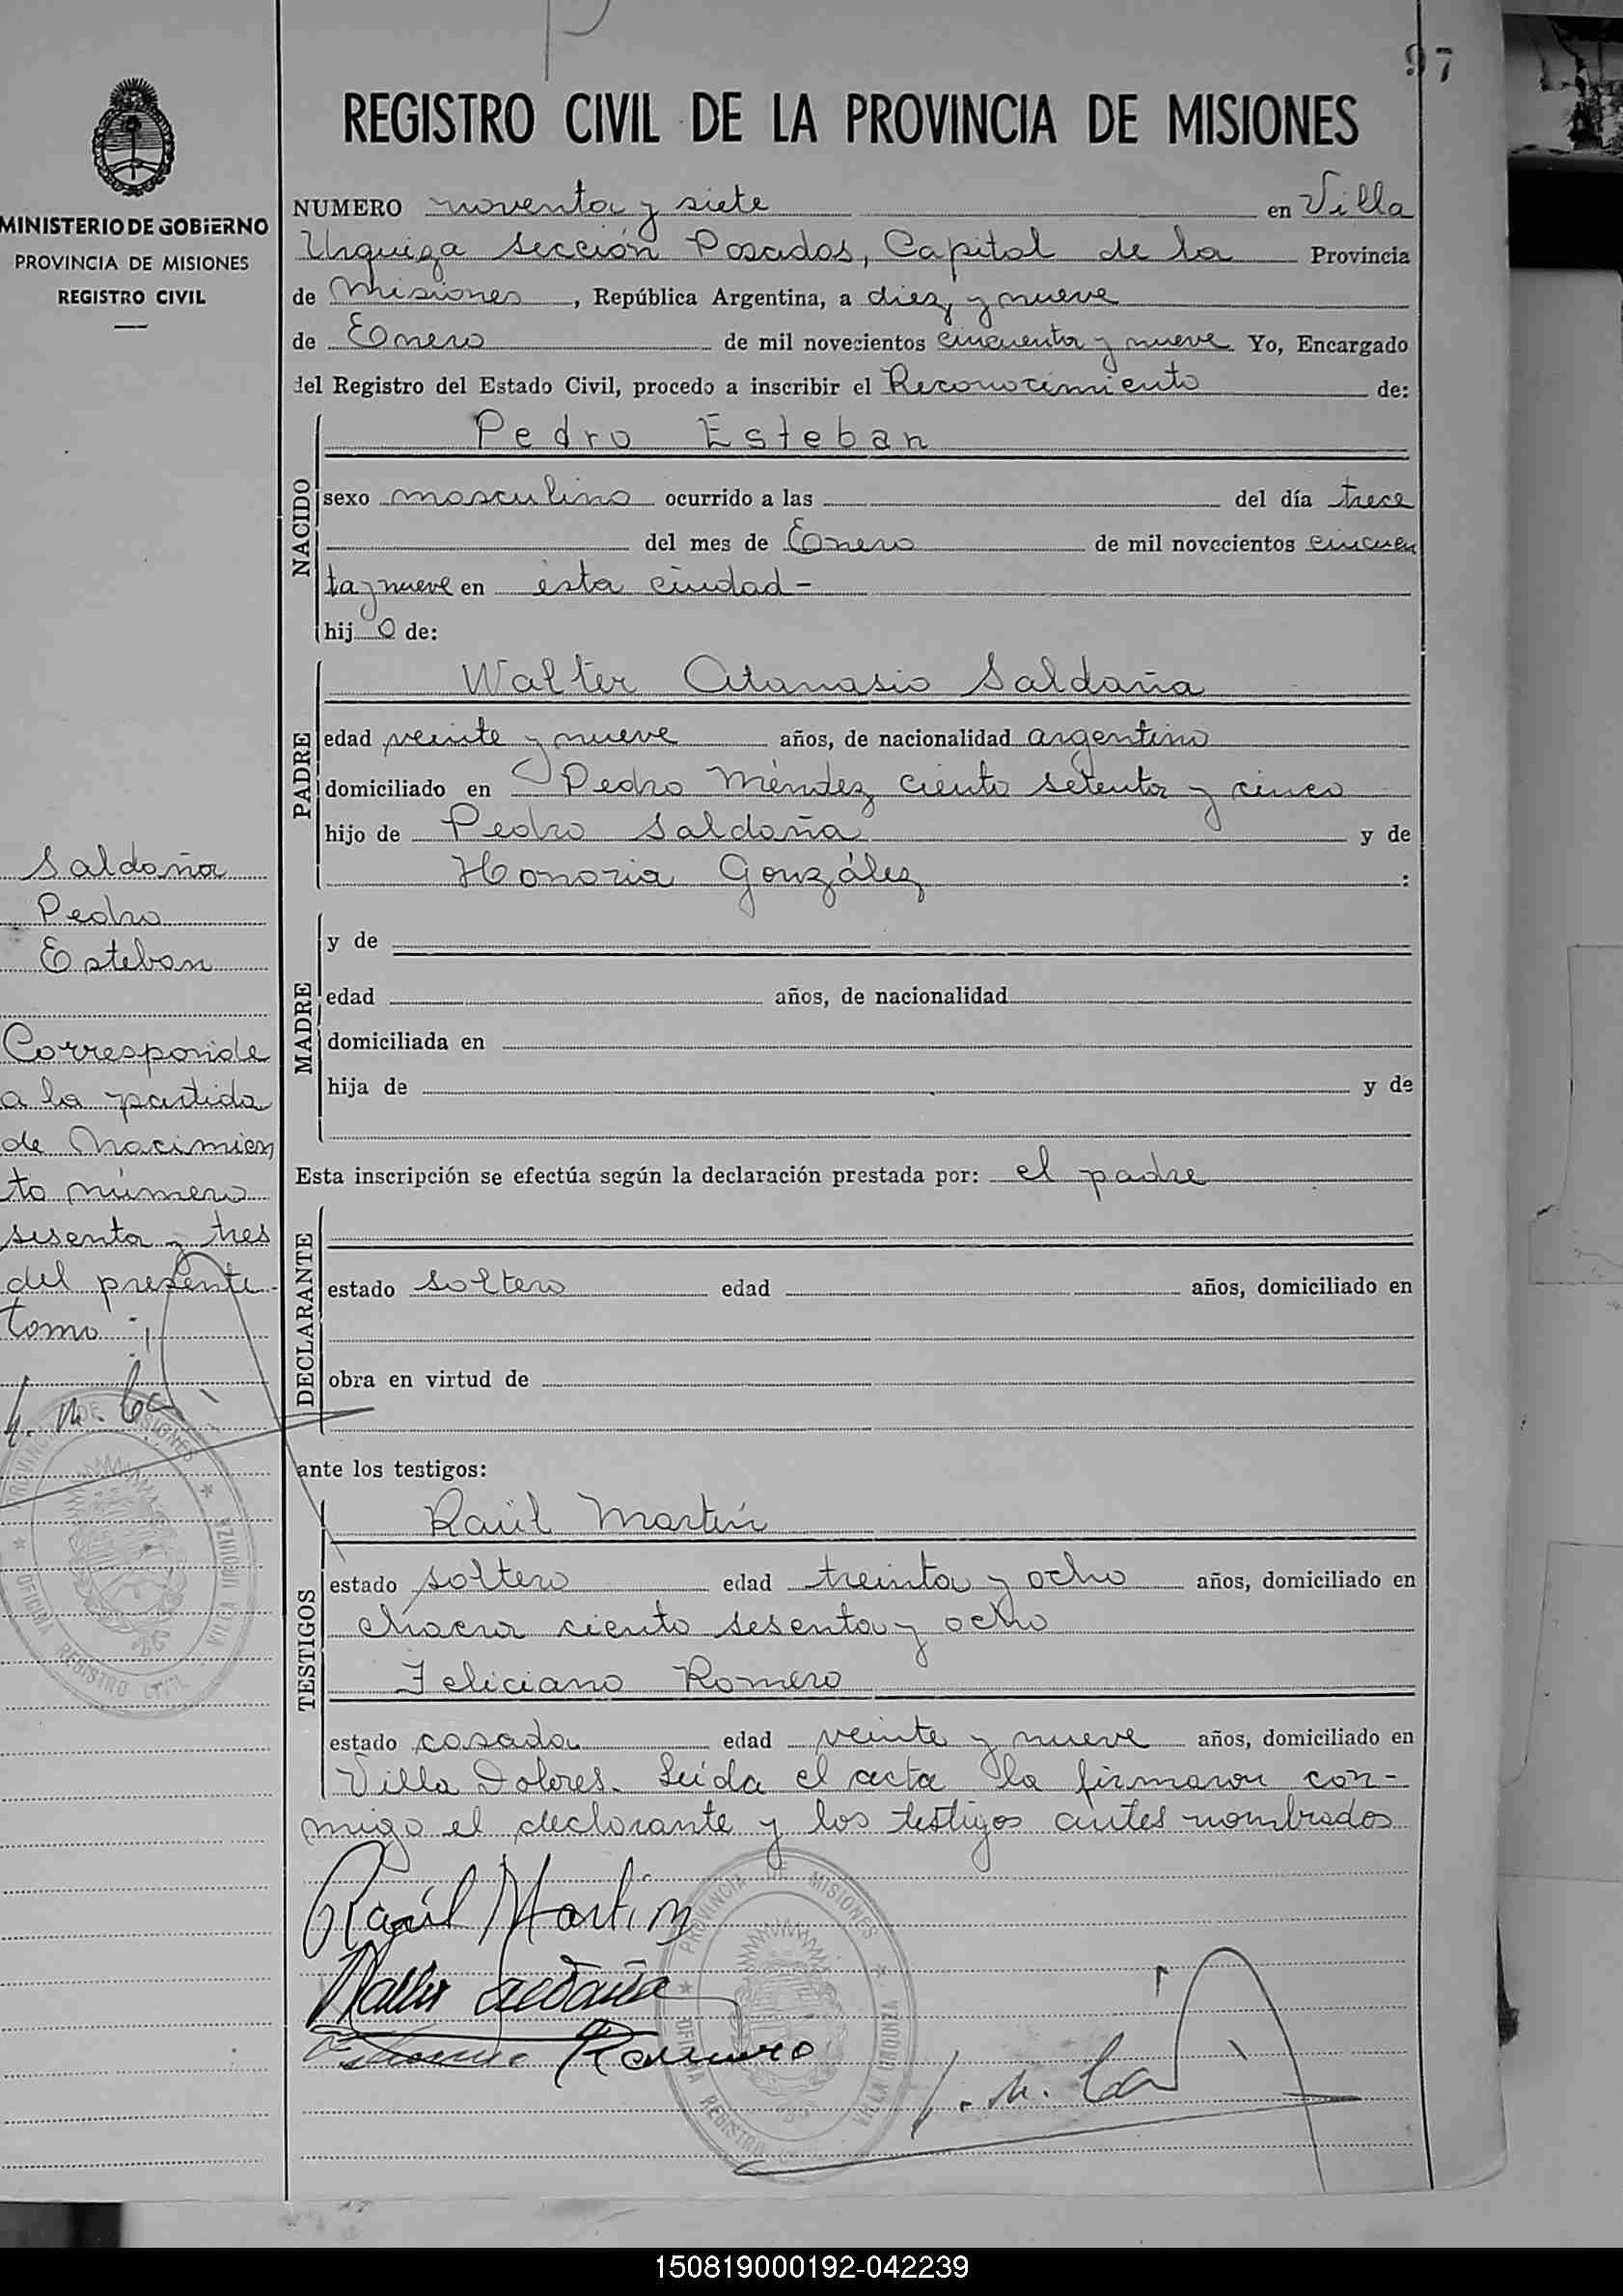 97
REGISTRO CIVIL DE LA PROVINCIA DE MISIONES
MINISTERIO DE GOBIERNO
PROVINCIA DE MISIONES
REGISTRO CIVIL
NUMERO noventa y siete en Villa
Urquiza sección Posadas, Capital de la Provincia
de Misiones, República Argentina, a diez y nueve
de Enero de mil novecientos cincuenta y nueve Yo, Encargado
del Registro del Estado Civil, procedo a inscribir el Reconocimiento de:
NACIDO
Pedro Esteban
sexo masculino ocurrido a las del día trece
del mes de Enero de mil novecientos cincuen
ta y nueve en esta ciudad-
hijo de:
PADRE
Walter Atanasio Saldaña
edad veinte y nueve años, de nacionalidad argentino
domiciliado en Pedro Méndez ciento setenta y cinco
hijo de Pedro Saldaña y de
Honoria González :
MADRE
y de
edad años, de nacionalidad
domiciliada en
hija de y de
Esta inscripción se efectúa según la declaración prestada por: el padre
DECLARANTE
estado soltero edad años, domiciliado en
obra en virtud de
ante los testigos:
TESTIGOS
Raúl Martín
estado soltero edad treinta y ocho años, domiciliado en
chacra ciento sesenta y ocho
Feliciano Romero
estado casado edad veinte y nueve años, domiciliado en
Villa Dolores. Leída el acta la firmaron con-
migo el declarante y los testigos antes nombrados
Raúl Martín
Walter Saldaña
Romero
PROVINCIA DE MISIONES
OFICINA REGISTRO CIVIL
VILLA URQUIZA
Saldaña
Pedro
Esteban
Corresponde
a la partida
de Nacimien
to número
sesenta y tres
del presente
tomo
PROVINCIA DE MISIONES
OFICINA REGISTRO CIVIL - VILLA URQUIZA
150819000192-042239